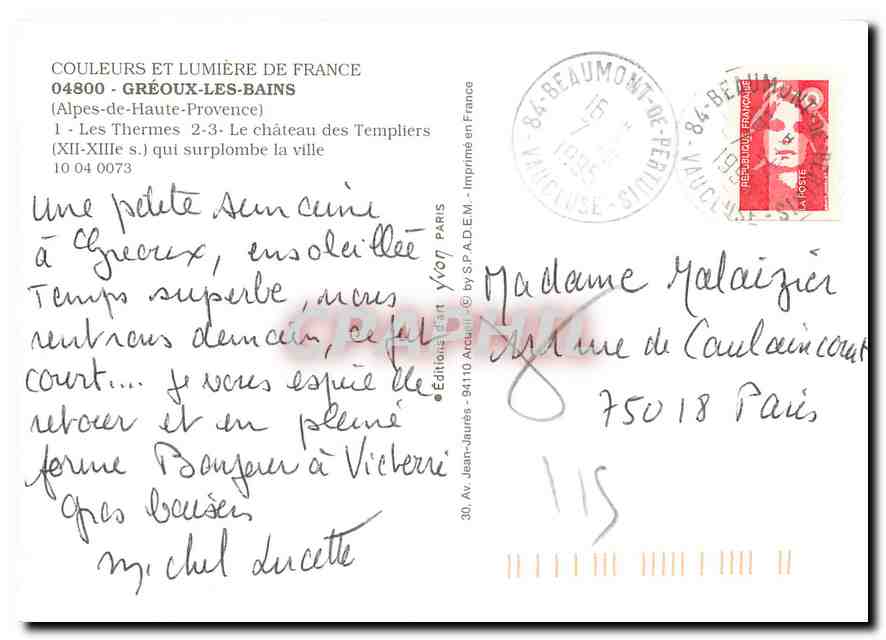 COULEURS ET LUMIÈRE DE FRANCE
04800 - GRÉOUX-LES-BAINS
(Alpes-de-Haute-Provence)
1 - Les Thermes 2-3- Le château des Templiers
(XII-XIIIe s.) qui surplombe la ville
10 04 0073
une petite semaine
à Gréoux, ensoleillée
Temps superbe, nous
rentrons demain, ce fut
court... Je vous espère de
retour et en pleine
forme Bonjour à Victorri
Gros baisers
Michel Lucette
● Éditions d'art yvon PARIS
30, Av. Jean-Jaurès - 94110 Arcueil - © by S.P.A.D.E.M. - Imprimé en France
84-BEAUMONT-DE-PERTUIS
16 H
7
1995
VAUCLUSE
84-BEAUMONT-DE-PERTUIS
VAUCLUSE
RÉPUBLIQUE FRANÇAISE
LA POSTE
Madame Malaizier
rue de Caulaincourt
75018 Paris
115
CPAPHIL